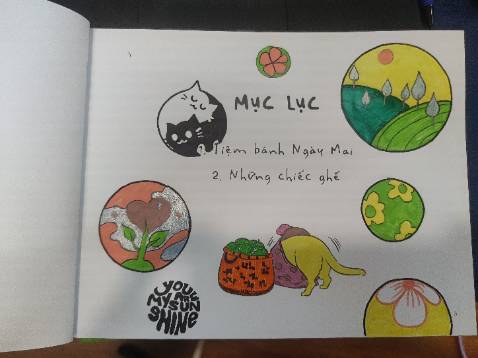 MỤC LỤC
1. Tiệm bánh Ngày Mai
2. Những chiếc ghế
YOU ARE
MY SUN
SHINE